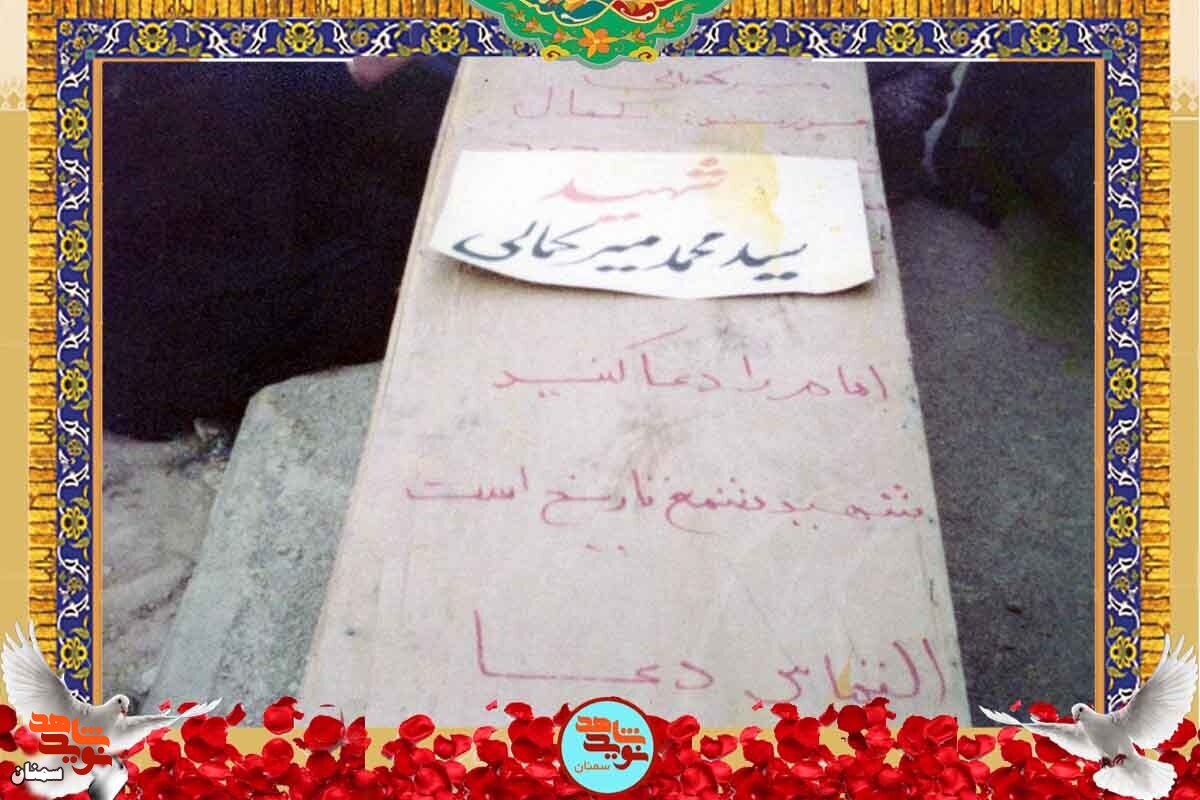 کمال
شهید
سید محمد میرکمالی
امام را دعا کنید
شهید شمع تاریخ است
التماس دعا
نوید شاهد
سمنان
نوید شاهد
سمنان